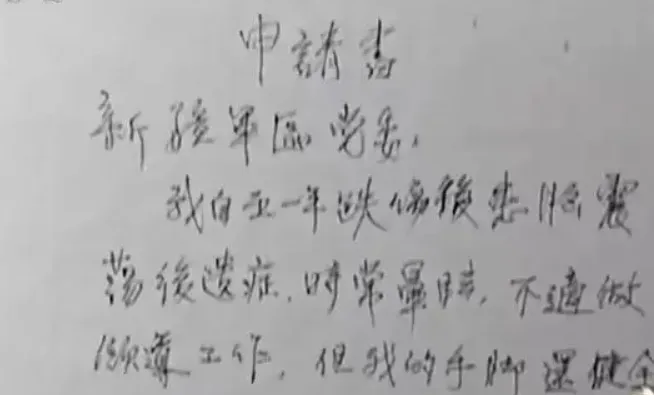 申請書
新疆军區党委,
我自五一年跌傷後患脑震
荡後遗症,时常暈眩,不適做
领導工作,但我的手脚還健全